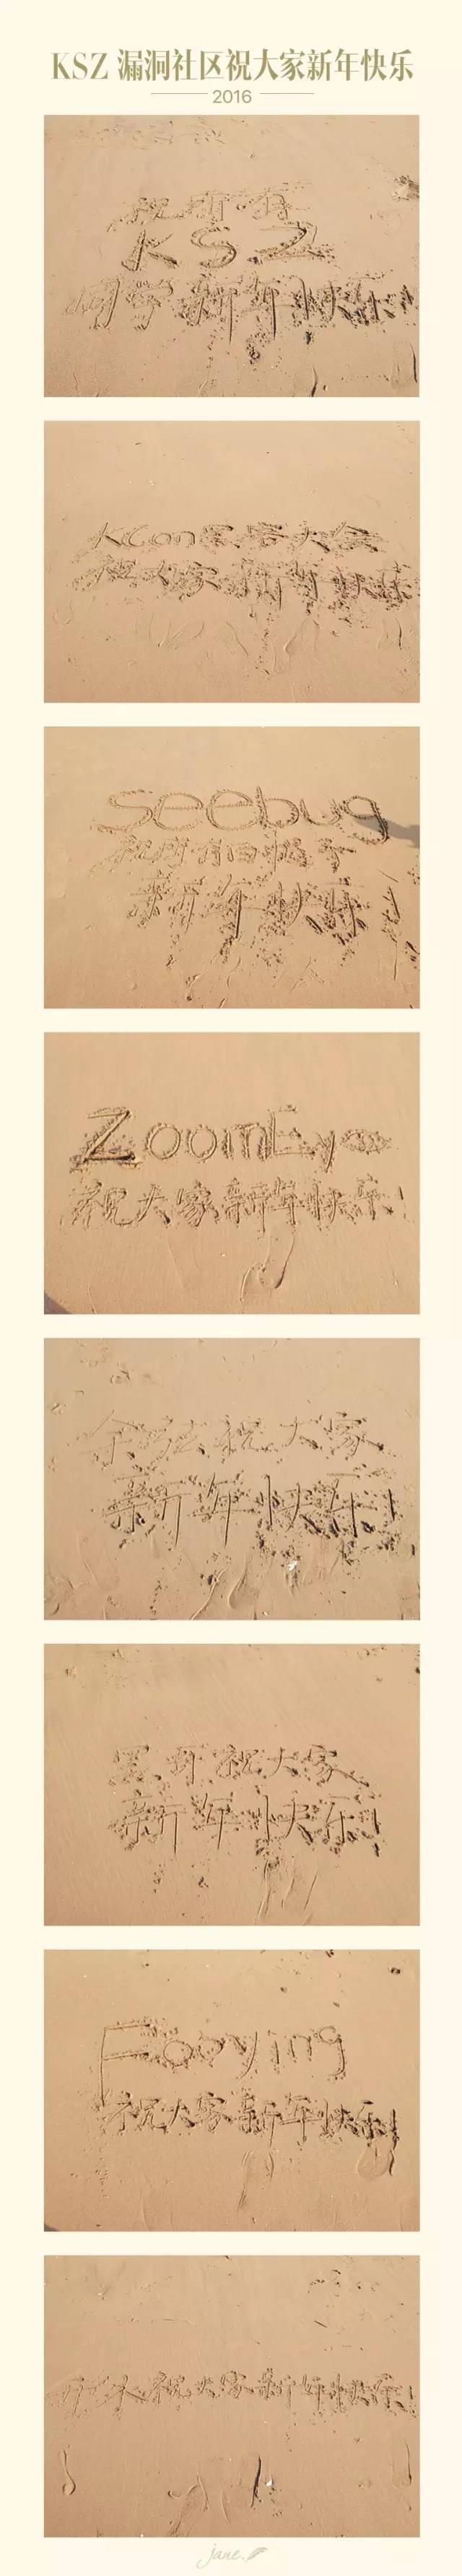 KSZ 漏洞社区祝大家新年快乐
2016
祝所有
KSZ
同学新年快乐!
KCon黑客大会
祝大家新年快乐
seebug
祝所有白帽子
新年快乐!
ZoomEye
祝大家新年快乐!
余弦祝大家
新年快乐!
黑哥祝大家
新年快乐!
Fooying
祝大家新年快乐!
祝大家新年快乐!
jane.